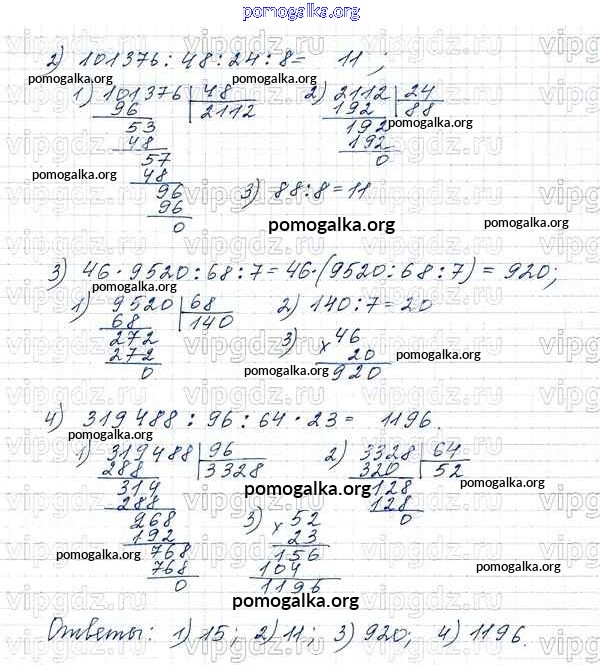 pomogalka.org
2) 101376 : 48 : 24 : 8 = 11 ;
pomogalka.org
1) 101376 | 48
2) 2112 | 24
96 | 2112
192 | 88
53
192
pomogalka.org
48
192
57
0
48
96
3) 88 : 8 = 11
96
0
pomogalka.org
pomogalka.org
3) 46 · 9520 : 68 : 7 = 46 · (9520 : 68 : 7) = 920;
pomogalka.org
1) 9520 | 68
2) 140 : 7 = 20
68 | 140
272
3) 46
272
× 20
pomogalka.org
0
920
4) 319488 : 96 : 64 · 23 = 1196.
pomogalka.org
1) 319488 | 96
2) 3328 | 64
288 | 3328
320 | 52
314
128
288
128
pomogalka.org
268
0
192
3) 52
pomogalka.org
768
× 23
768
156
0
104
1196
pomogalka.org
pomogalka.org
Ответы: 1) 15; 2) 11; 3) 920; 4) 1196.
vipgdz.ru